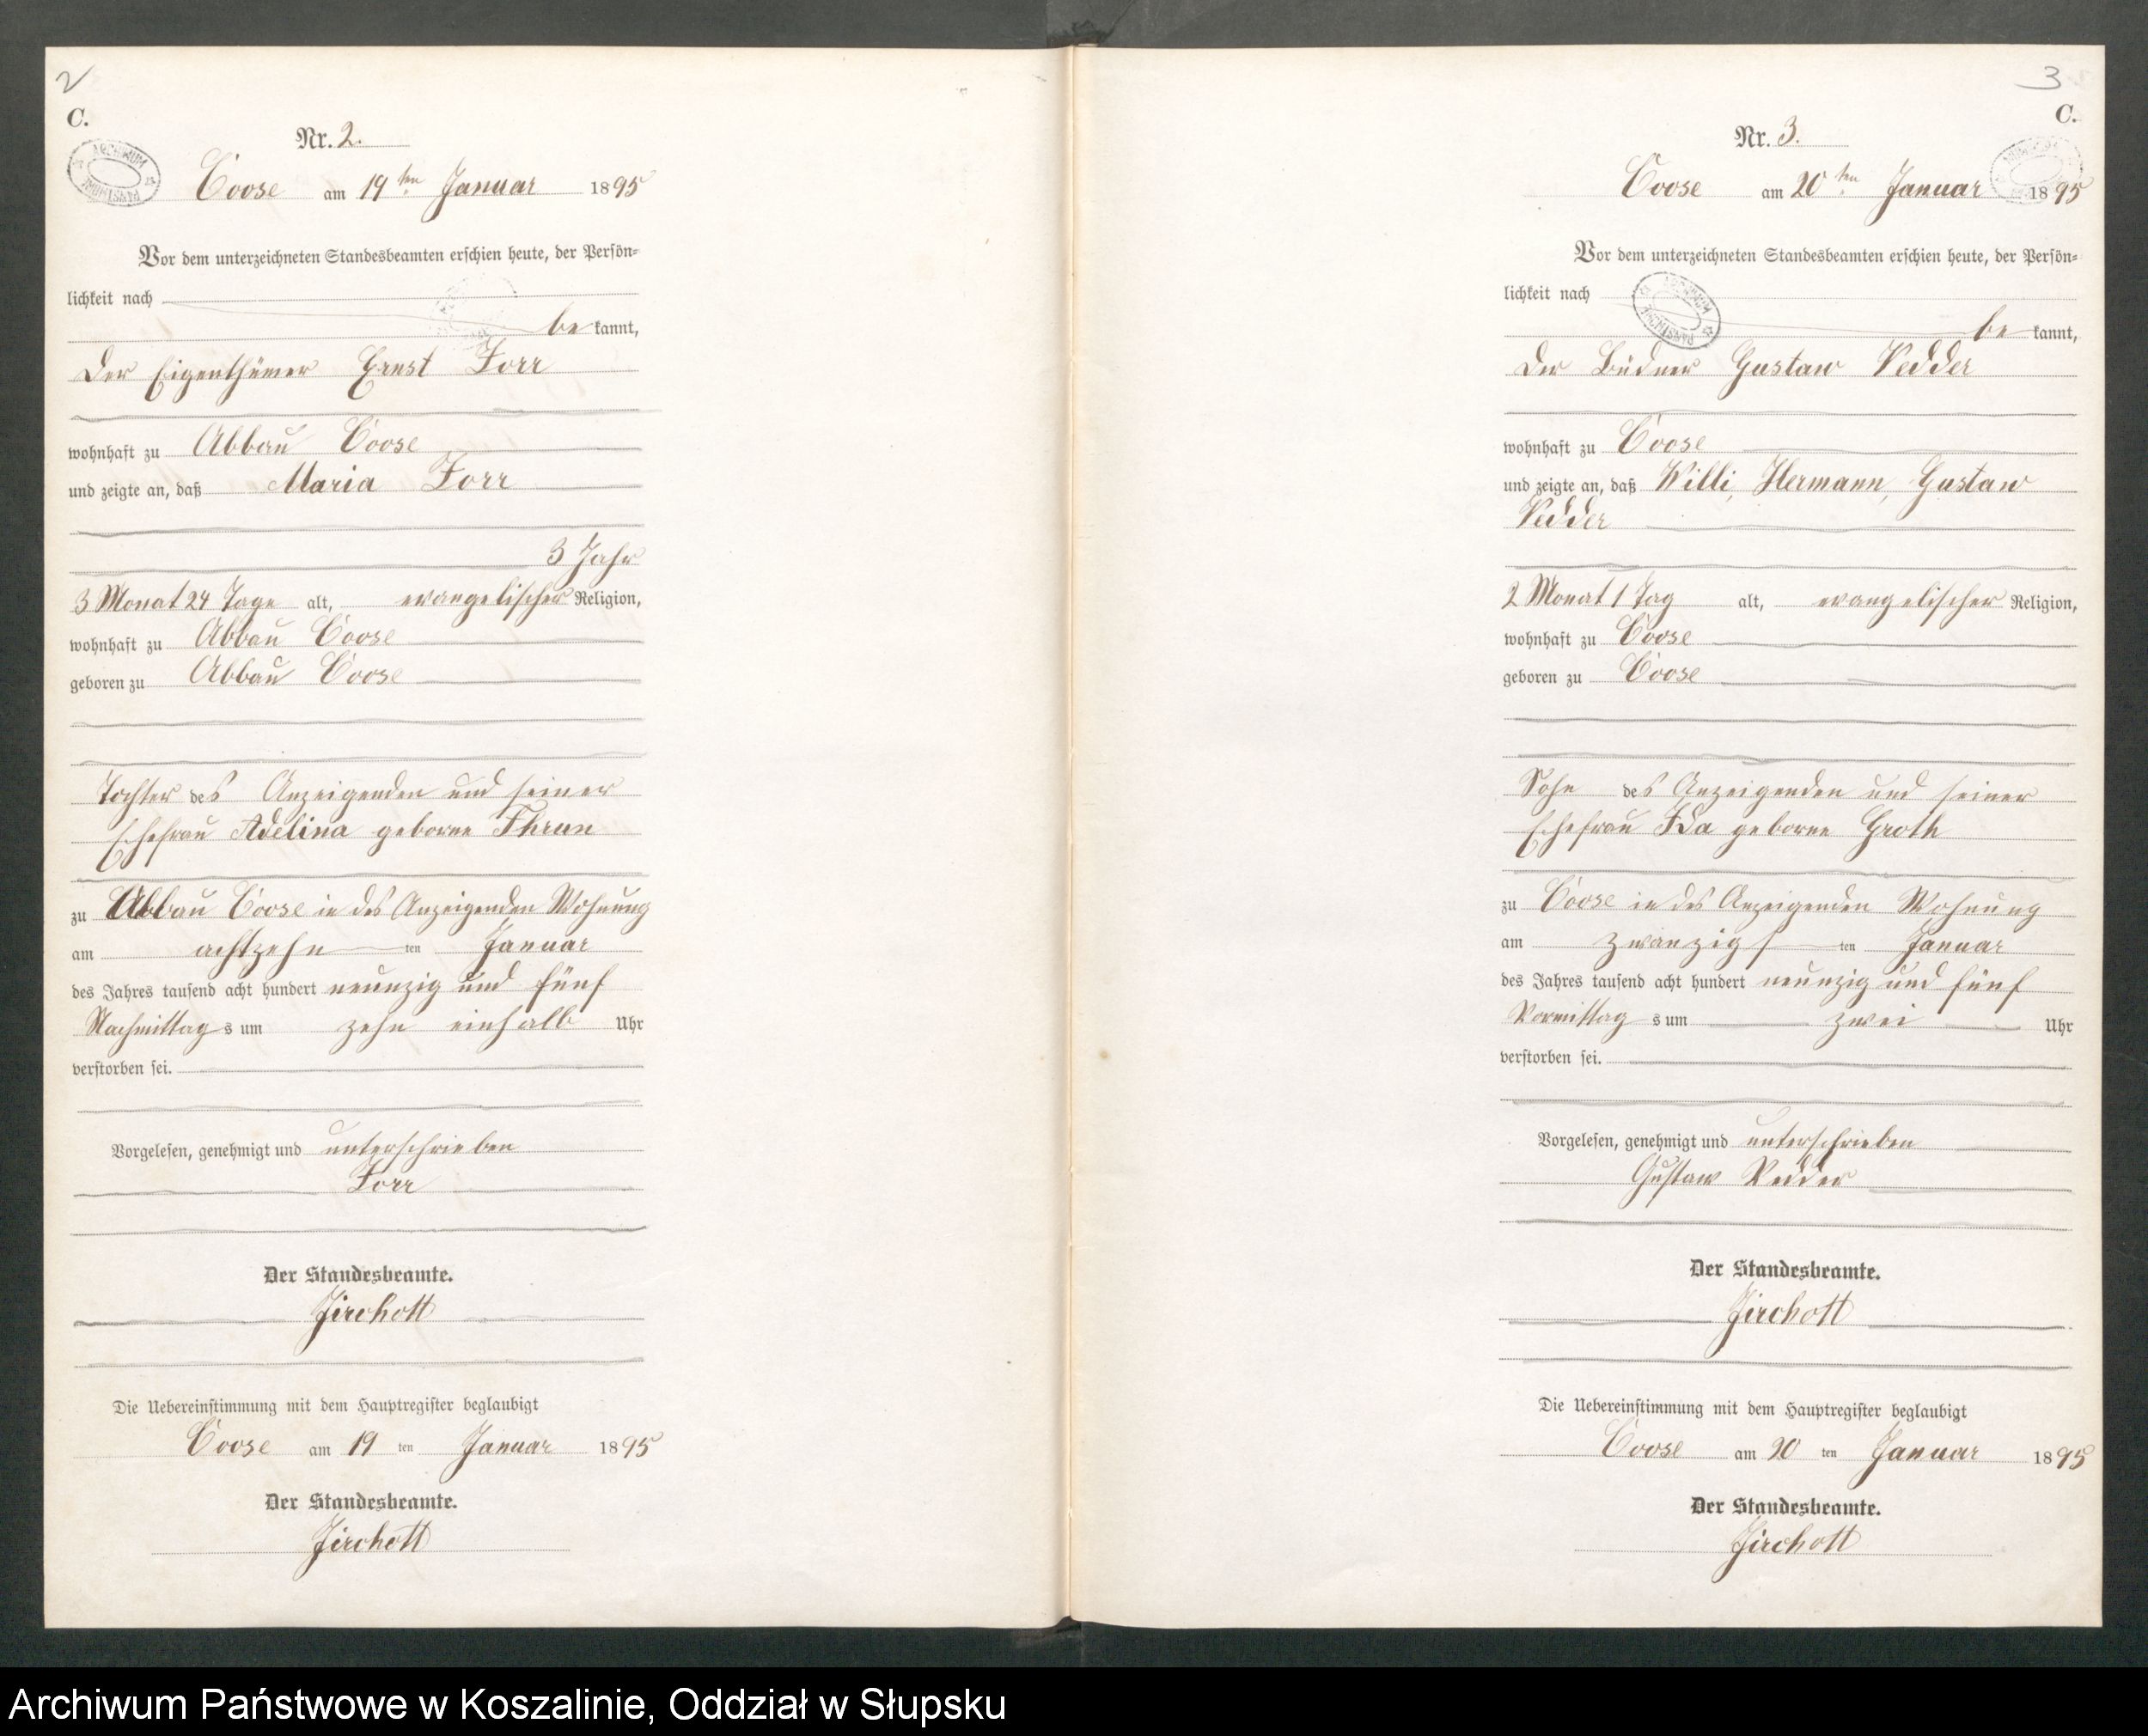 2
C.
Nr. 2.
ARCHIWUM PAŃSTWOWE
Coose am 19ten Januar 1895
Vor dem unterzeichneten Standesbeamten erschien heute, der Persön-
lichkeit nach
be kannt,
der Eigenthümer Ernst Torr
wohnhaft zu Abbau Coose
und zeigte an, daß Maria Torr
3 Jahr
3 Monat 24 Tage alt, evangelischer Religion,
wohnhaft zu Abbau Coose
geboren zu Abbau Coose
Tochter des Anzeigenden und seiner
Ehefrau Adelina geborne Thrun
zu Abbau Coose in des Anzeigenden Wohnung
am achtzehn ten Januar
des Jahres tausend acht hundert neunzig und fünf
Nachmittag s um zehn einhalb Uhr
verstorben sei.
Vorgelesen, genehmigt und unterschrieben
Torr
Der Standesbeamte.
Jirchott
Die Uebereinstimmung mit dem Hauptregister beglaubigt
Coose am 19 ten Januar 1895
Der Standesbeamte.
Jirchott
3
C.
Nr. 3.
Coose am 20ten Januar 1895
Vor dem unterzeichneten Standesbeamten erschien heute, der Persön-
lichkeit nach
ARCHIWUM PAŃSTWOWE
be kannt,
der Büdner Gustaw Vedder
wohnhaft zu Coose
und zeigte an, daß Willi, Hermann, Gustaw
Vedder
2 Monat 1 Tag alt, evangelischer Religion,
wohnhaft zu Coose
geboren zu Coose
Sohn des Anzeigenden und seiner
Ehefrau Ida geborne Groth
zu Coose in des Anzeigenden Wohnung
am zwanzigs ten Januar
des Jahres tausend acht hundert neunzig und fünf
Vormittag s um zwei Uhr
verstorben sei.
Vorgelesen, genehmigt und unterschrieben
Gustaw Vedder
Der Standesbeamte.
Jirchott
Die Uebereinstimmung mit dem Hauptregister beglaubigt
Coose am 20 ten Januar 1895
Der Standesbeamte.
Jirchott
Archiwum Państwowe w Koszalinie, Oddział w Słupsku